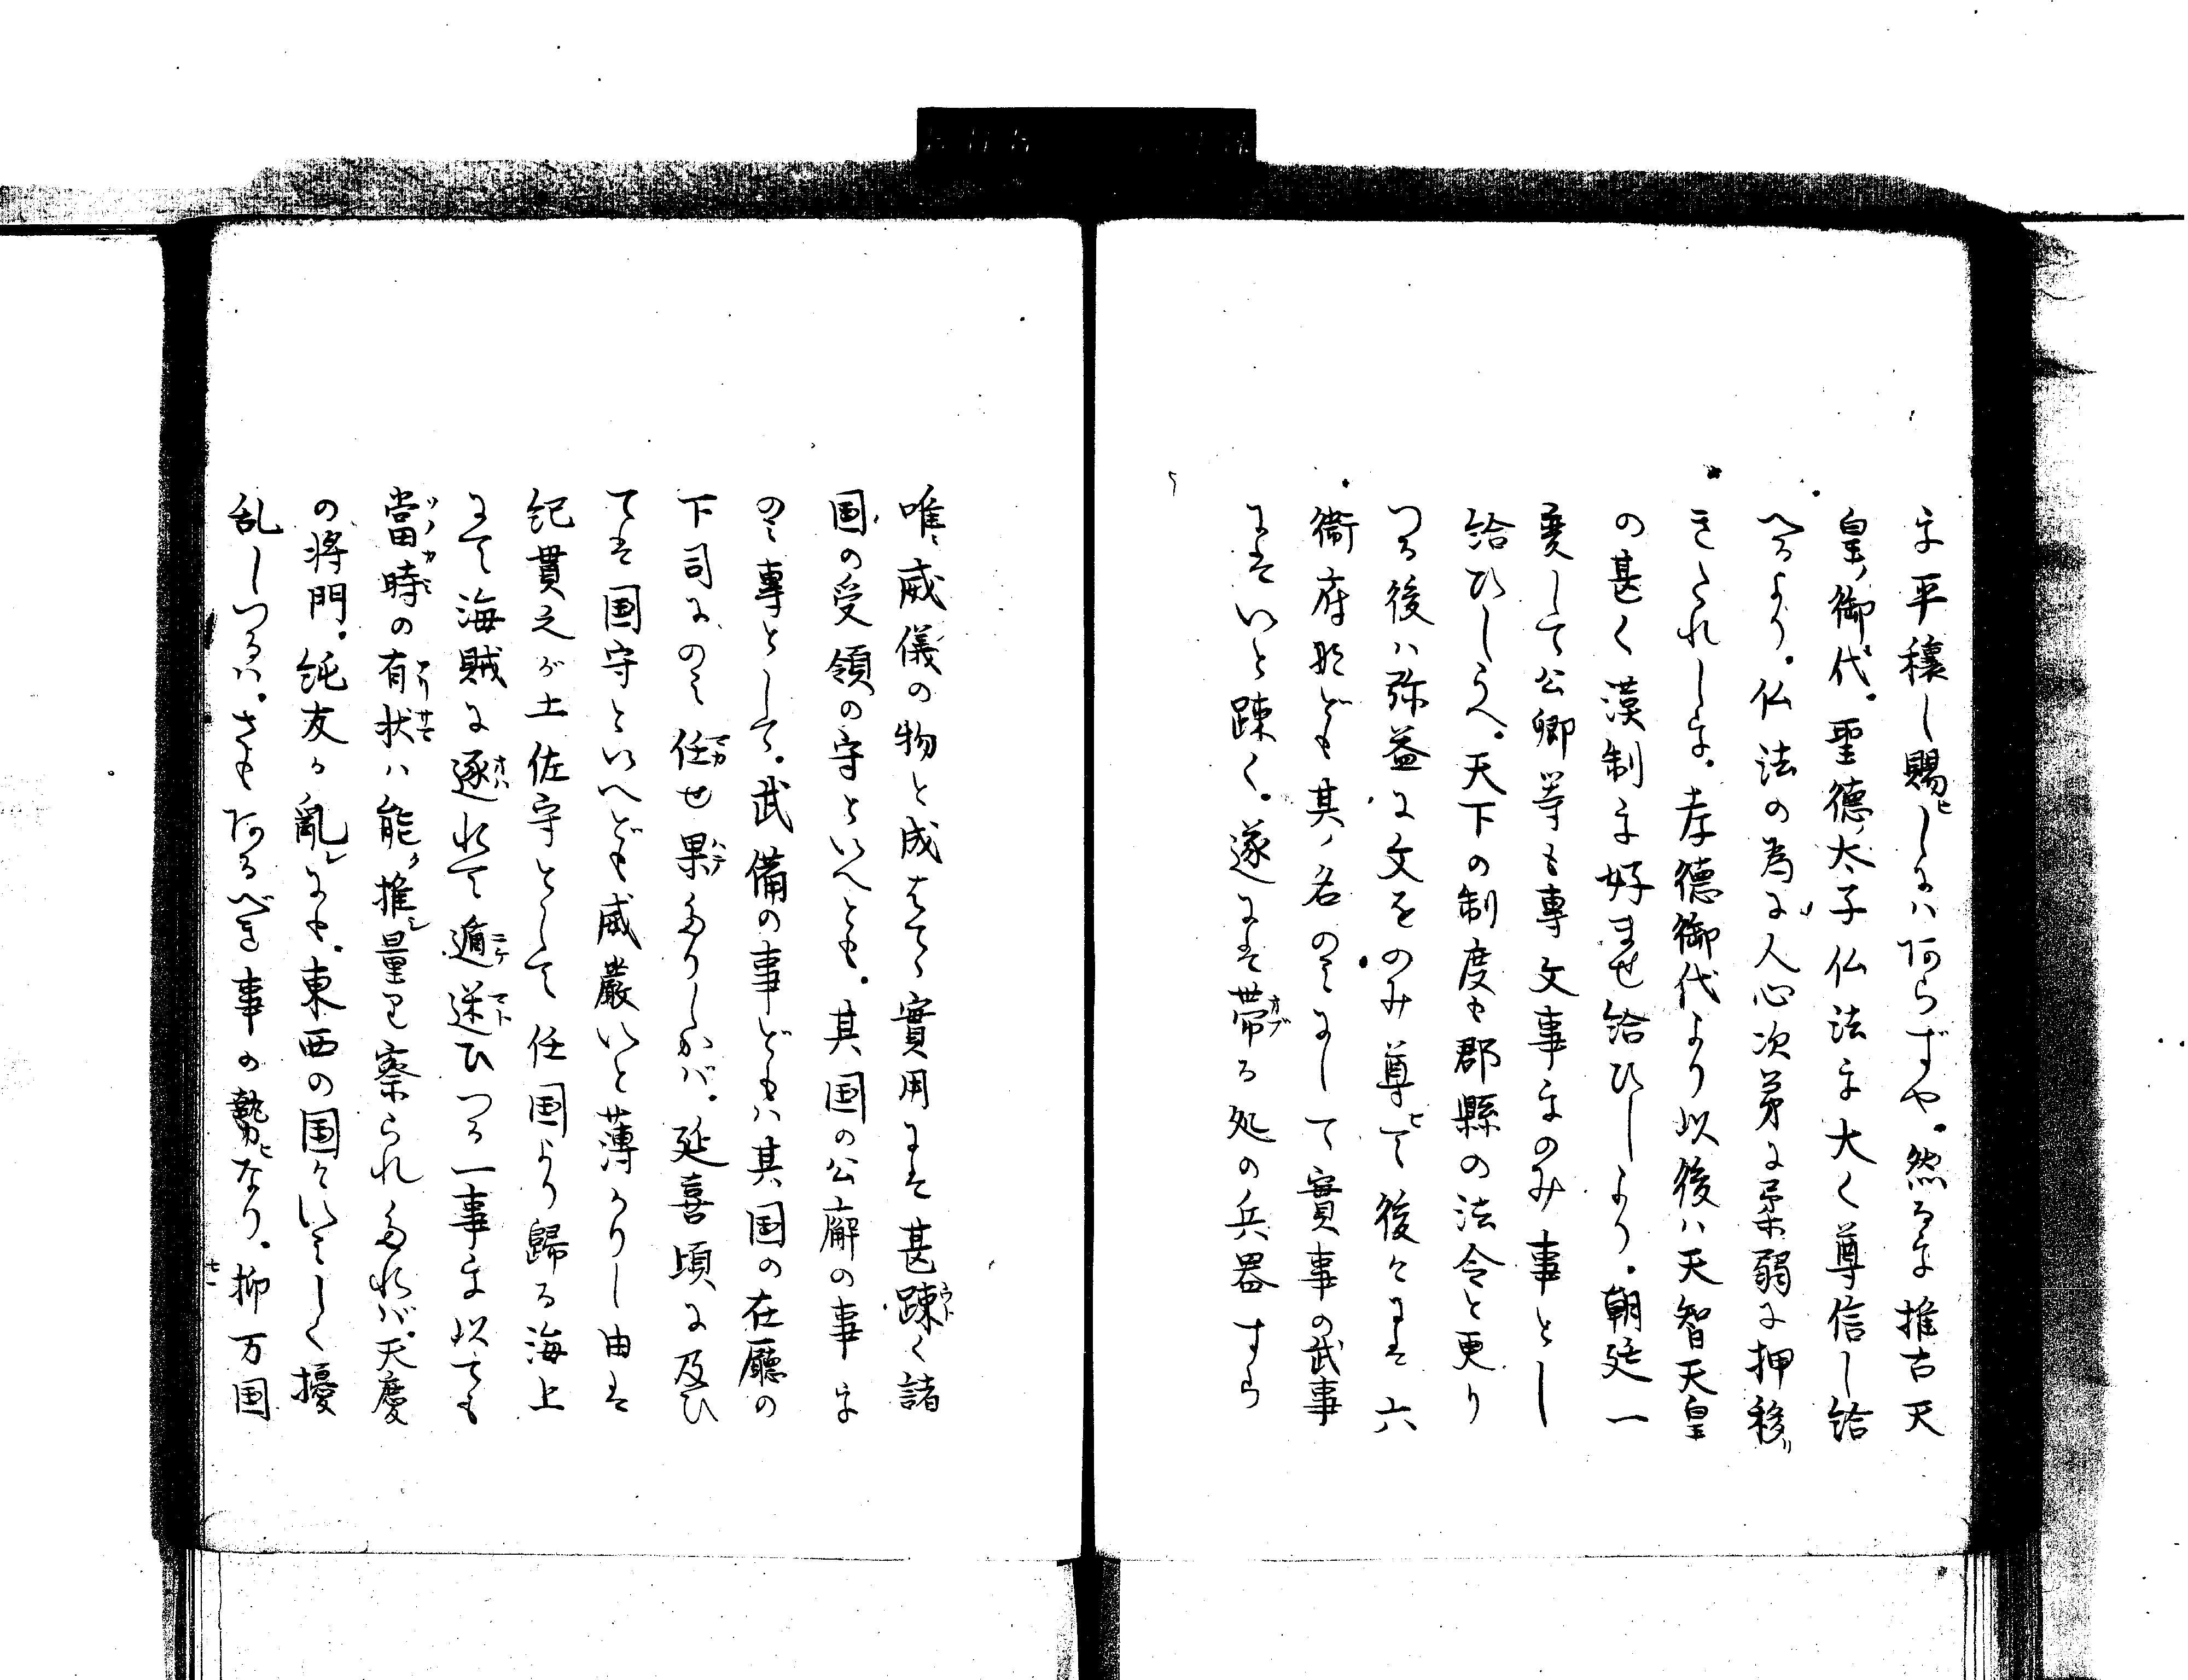 を平穣し賜ヒしにハあらずや。然るを推古天
皇ノ御代。聖徳ノ太子仏法を大く尊信し給
へるより。仏法の為に人心次第に柔弱に押移リ
きたれしを。孝徳御代より以後ハ天智天皇
の甚く漢制を好ませ給ひしより。朝廷一
変して公卿等も専文事をのみ事とし
給ひしうへ。天下の制度も郡縣の法令と更り
つる後ハ弥益に文をのみ尊ヒて後々には六
衛府なども其ノ名のみにして實事の武事
にはいと疎く。遂には帯る処の兵器すら
唯々威儀の物と成はてゝ實用には甚疎く諸
国の受領の守といへとも。其国の公廨の事を
のみ專として。武備の事どもハ其国の在廳の
下司にのみ任せ果たりしかバ。延喜頃に及ひ
ては国守といへども威嚴いと薄かりし由は
紀貫之が土佐守として任国より歸る海上
にて海賊に逐れて遁迷ひつる一事を以ても
當時の有状ハ能ク推シ量り察られたれバ。天慶
の将門。純友か亂レにも。東西の国々いみしく擾
乱しつるハ。さもあるべき事の勢ヒなり。抑万国